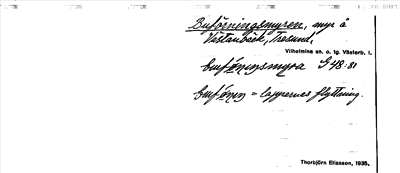 Buföringsmyren, myr å
Västanbäck, Trasund,
Vilhelmina sn. o. tg. Västerb. l.
bufö́ni̮ŋsmyra G48:81
bufö́ni̮ŋ = lapparnas flyttning.
Thorbjörn Eliasson, 1935.